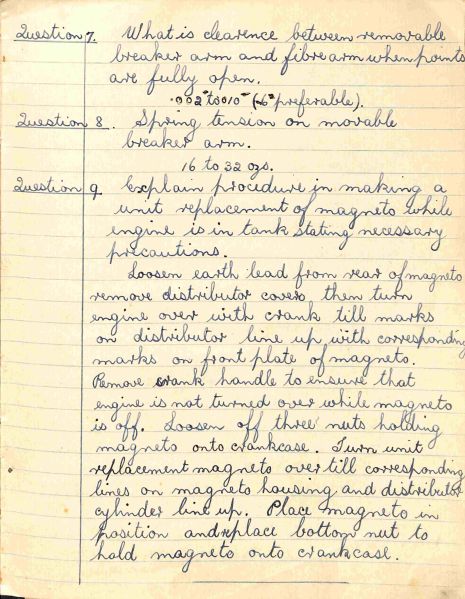 Question 7. What is clearence between removable
breaker arm and fibre arm when points
are fully open.
.002" to 010" (-6" preferable).
Question 8. Spring tension on movable
breaker arm.
16 to 32 ozs.
Question 9 Explain procedure in making a
unit replacement of magneto while
engine is in tank stating necessary
precautions.
Loosen earth lead from rear of magneto
remove distributor covers then turn
engine over with crank till marks
on distributor line up with corresponding
marks on front plate of magneto.
Remove crank handle to ensure that
engine is not turned over while magneto
is off. Loosen off three nuts holding
magneto onto crankcase. Turn unit
replacement magneto over till corresponding
lines on magneto housing and distributor
cylinder line up. Place magneto in
position and replace bottom nut to
hold magneto onto crankcase.